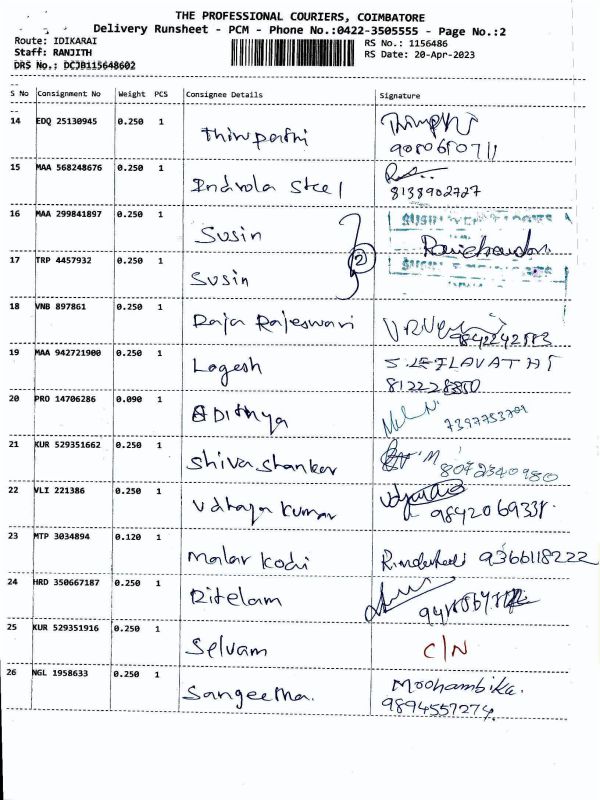 THE PROFESSIONAL COURIERS, COIMBATORE
Delivery Runsheet - PCM - Phone No.:0422-3505555 - Page No.:2
Route: IDIKARAI
RS No.: 1156486
Staff: RANJITH
RS Date: 20-Apr-2023
DRS No.: DCJB115648602
S No Consignment No Weight PCS Consignee Details Signature
14 EDQ 25130945 0.250 1 Thirupathi
15 MAA 568248676 0.250 1 Indrola Steel
8138902727
16 MAA 299841897 0.250 1 Susin
2 Ravichandran
17 TRP 4457932 0.250 1 Susin
18 VNB 897861 0.250 1 Raja Rajeswari
19 MAA 942721900 0.250 1 Logesh S. LEELAVATHI
20 PRO 14706286 0.090 1 ADithya
7397753701
21 KUR 529351662 0.250 1 Shiva Shankar
8072340980
22 VLI 221386 0.250 1 Udhaya Kumar
9842069331.
23 MTP 3034894 0.120 1 Malar Kodi 9366118222
24 HRD 350667187 0.250 1 Ritelam
25 KUR 529351916 0.250 1 Selvam C/N
26 NGL 1958633 0.250 1 Sangeetha. Moohambika.
9894557274.